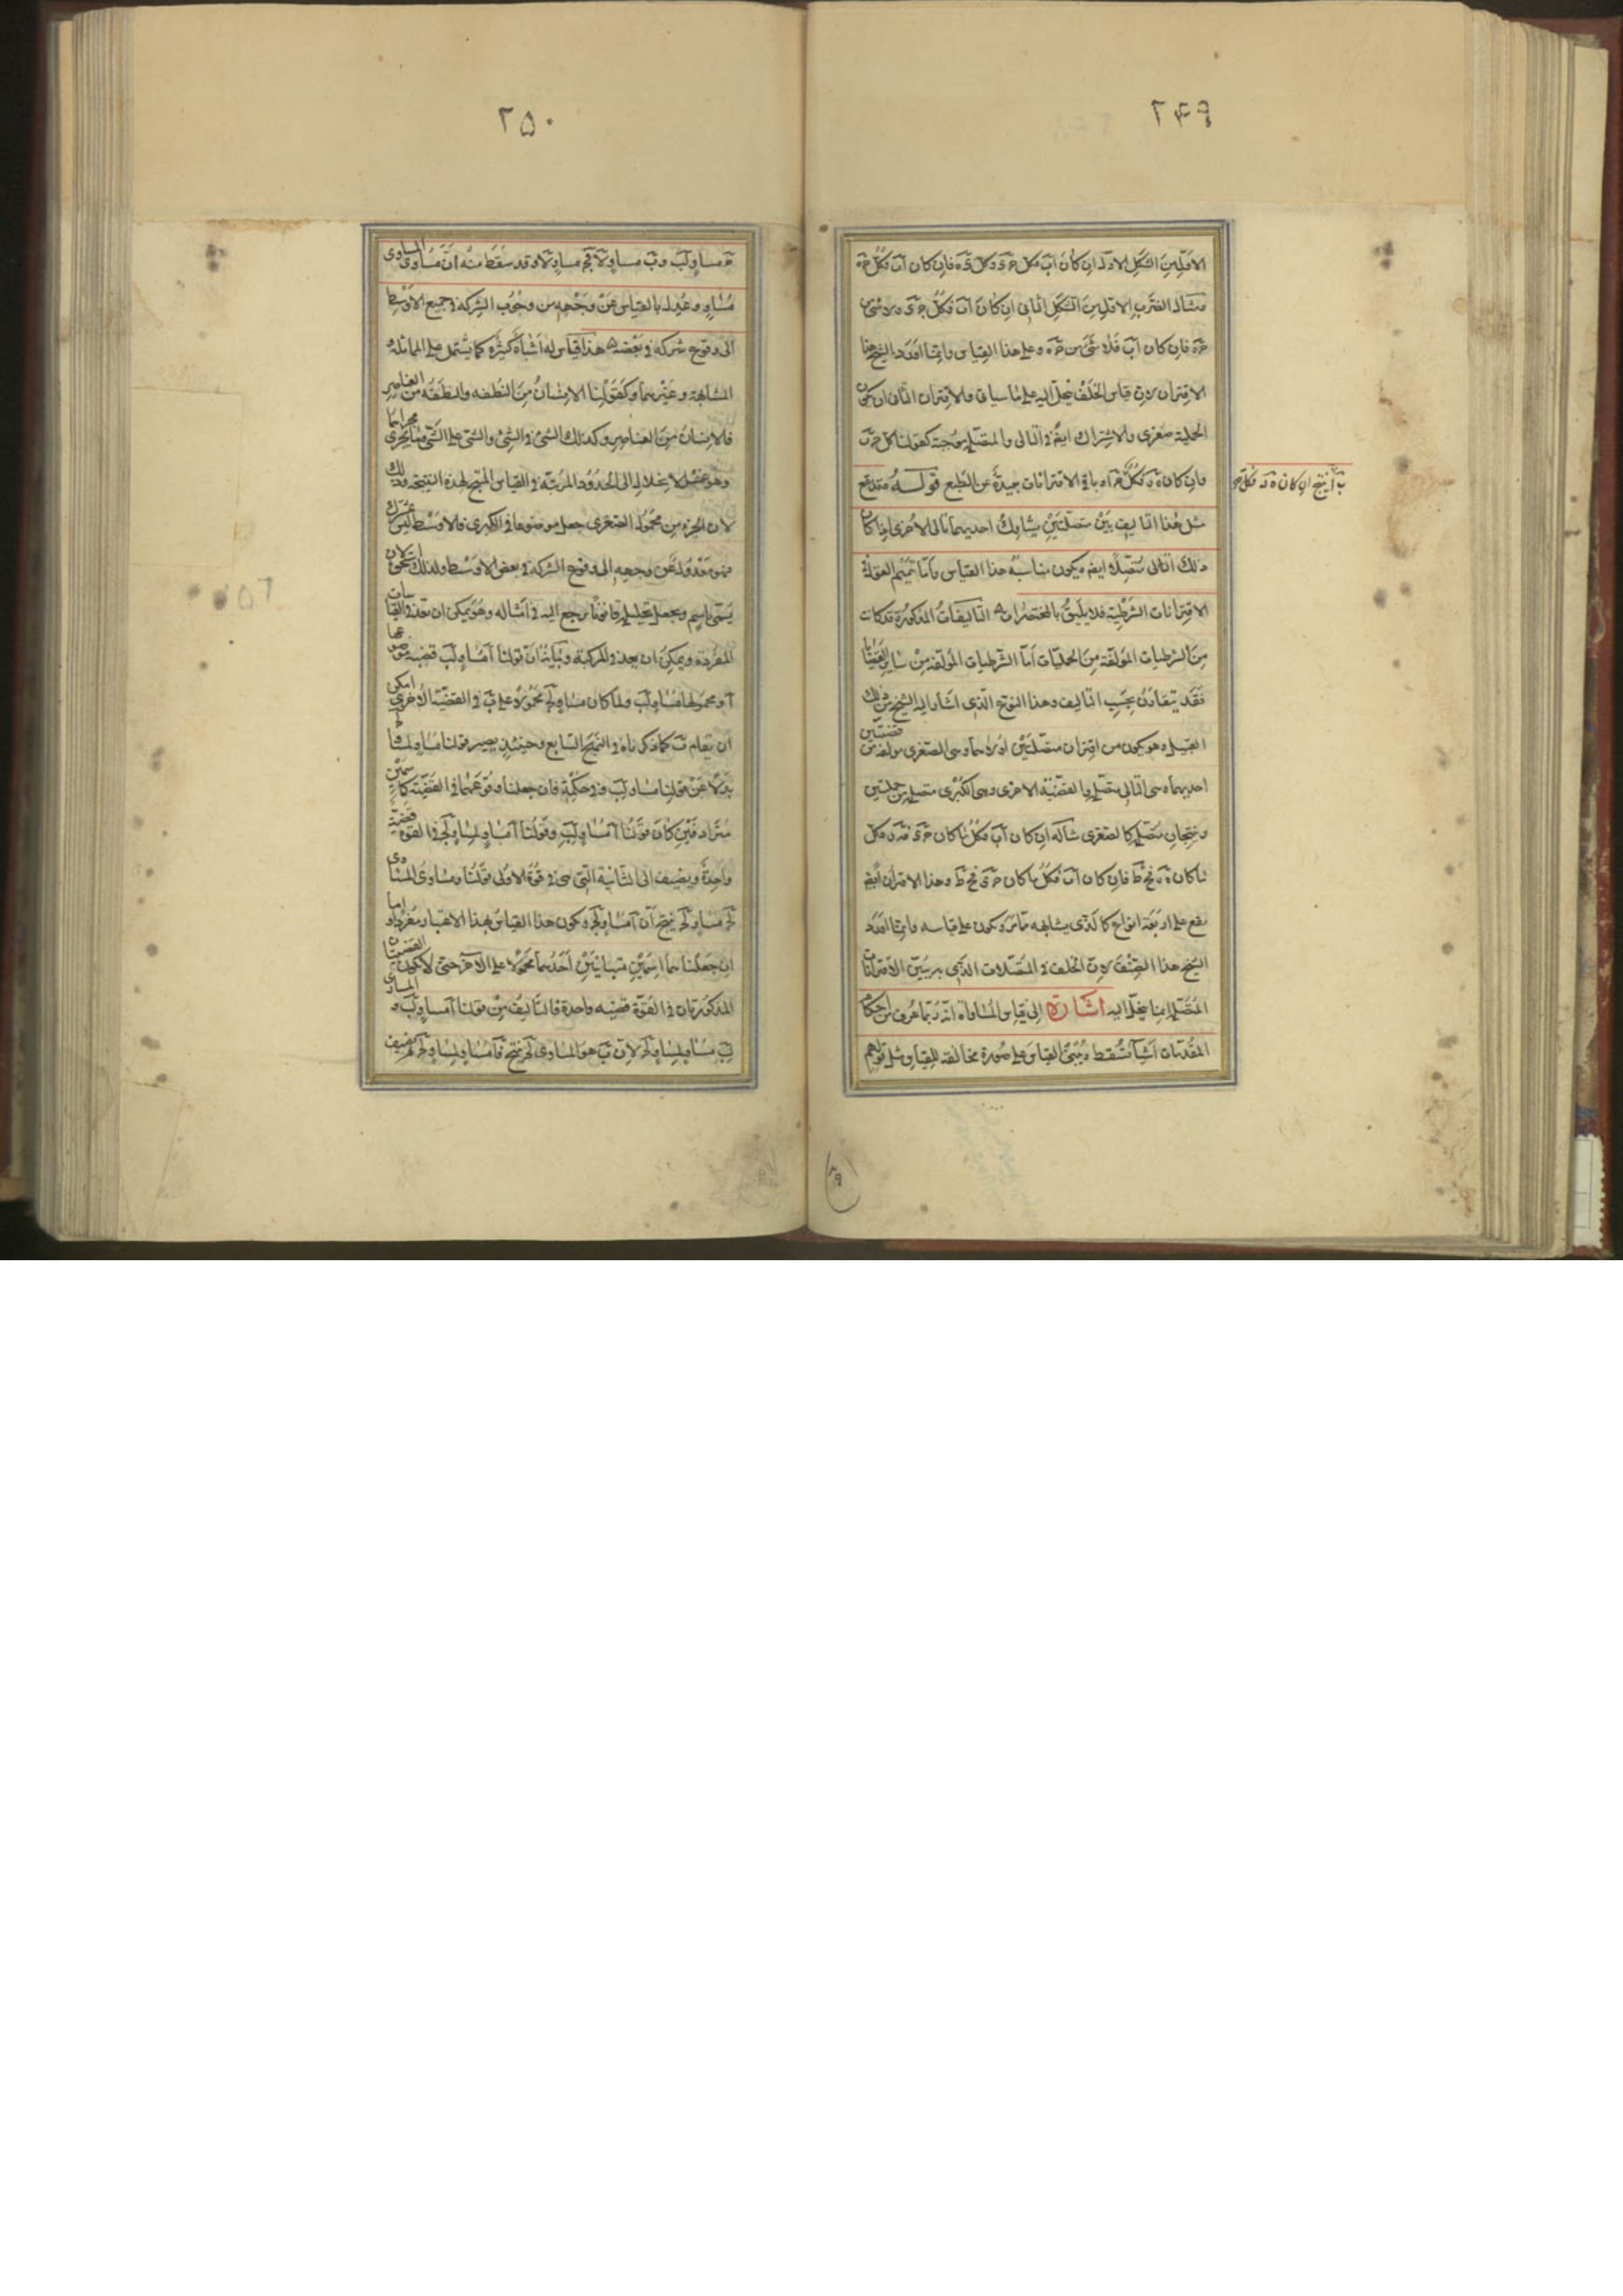 ٢٤٩
الاولين الشكل الاول ان كان آب فكل جَ دَ وكل دَ هَ فان كان آب فكل جَ هَ
مثال الضرب الاول من الشكل الثانى ان كان آب فكل جَ دَ ولا شئ من
هَ دَ فان كان آب فلا شئ من جَ هَ وعلى هذا القياس وانما افرد الشيخ هذا
الاقتران لان قياس الخلف ينحل اليه على ما سياتى والاقتران الثانى ان يكون
الحملية صغرى والاشتراك ايضا فى التالى والمتصلة موجبة كقولنا كل جَ بَ
وان كان هَ دَ فكل
بَ آ ينتج ان كان هَ دَ فكل جَ
آ وباقى الاقترانات بعيدة عن الطبع قوله وقد يقع
مثل هذا التاليف بين متصلتين يشارك احديهما تالى الاخرى اذا كان
ذلك التالى متصلا ايضا ويكون مناسبة هذا القياس واما تتميم القول فى
الاقترانات الشرطية فلا يليق بالمختصرات التاليفات المذكورة قد كانت
من الشرطيات المؤلفة من الحمليات اما الشرطيات المؤلفة من ساير القضايا
فقد يتفاوت بحسب التاليف وهذا النوع الذى اشار اليه الشيخ من ذلك
القبيل وهو يكون من اقتران متصلتين اوليهما وهى الصغرى مولفة من قضيتين
احديهما وهى التالى متصلة والقضية الاخرى وهى الكبرى متصلة من حمليتين
وينتجان متصلة كالصغرى مثاله ان كان آب فكلما كان جَ دَ فهَ زَ وكل
ما كان هَ زَ فحَ طَ فان كان آب فكلما كان جَ دَ فحَ طَ وهذا الاقتران ايضا
يقع على اربعة انواع كالذى يشابهه مما مر ويكون على قياسه وانما افرد
الشيخ هذا الصنف لان الخلف فى المتصلات الذى به يتبين الاقترانات
المتصلة انما ينحل اليه اشارة الى قياس المساواة انه ربما عرف من احكام
المقدمات اشيآ تسقط ويبنى القياس على صورة مخالفة للقياس مثل قولهم
٢٥٠
جَ مساو لبَ وبَ مساو لآ فجَ مساو لآ وقد سقط منه ان مساوى المساوى
مساو وعدل بالقياس عن وجهه من وجوب الشركة فى جميع الاوسط
الى وقوع شركة فى بعضه هذا قياس له اشباه كثيرة كما يشتمل على المماثلة و
المشابهة وغيرهما وكقولنا الانسان من النطفة والنطفة من العناصر
فالانسان من العناصر وكذلك الشئ فى الشئ والشئ على الشئ وما يجرى مجراها
وهو عسر الانحلال الى الحدود المرتبة فى القياس المنتج لهذه النتيجة وذلك
لان الجزء من محمول الصغرى جعل موضوعا فى الكبرى فالاوسط ليس بمشترك
فهو معدول عن وجهه الى وقوع الشركة فى بعض الاوسط ولذلك استحق لان
يسمى باسم ويجعل تحليله قانونا يرجع اليه فى امثاله وهو يمكن ان يعد فى القياسات
المفردة ويمكن ان يعد فى المركبة وبيانه ان قولنا آ مساو لبَ قضية موضوعها
آ ومحمولها مساو لبَ ولما كان مساو لجَ محمولا على بَ فى القضية الاخرى امكن
ان يقام بَ كما ذكرناه فى النهج السابع وحينئذ يصير قولنا مساو لمساو لجَ
بدلا عن قولنا مساو لبَ وفى حكمه فان جعلنا وقوعهما فى القضية كاسمين
مترادفين كان قولنا آ مساو لبَ وقولنا آ مساو لمساو لجَ فى القوة قضية
واحدة ويضيف الى الثانية التى هى فى قوة الاولى قولنا ومساوى المساوى
لجَ مساو لجَ ينتج آن آ مساو لجَ ويكون هذا القياس بهذا الاعتبار مفردا واما
ان جعلناهما اسمين متباينين احدهما محمولا على الآخر حتى لا يكون القضيتان
المذكورتان فى القوة قضية واحدة فالتاليف من قولنا آ مساو لبَ والمساوى
لبَ مساو لمساو لجَ لان بَ هو المساوى لجَ ينتج فآ مساو لمساو لجَ ثم يضيف